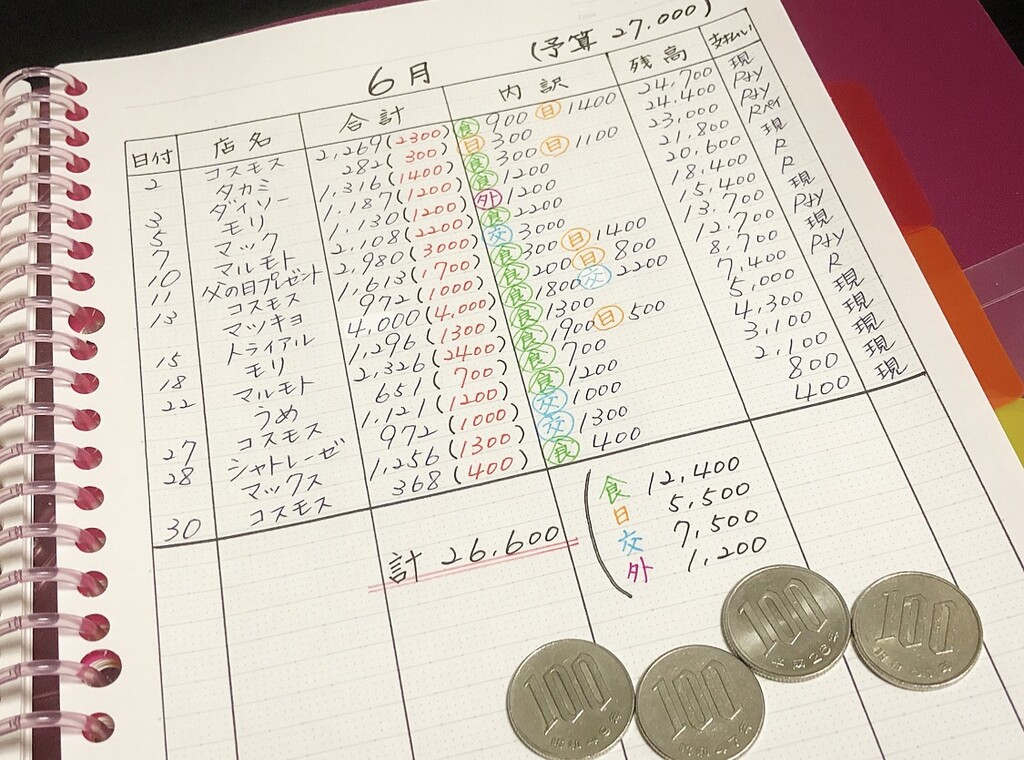 6月 (予算 27.000)
日付 店名 合計 内訳 残高 支払い
2 コスモス 2,269(2300) 食 900 日 1400 24,700 現
タカミ 282(300) 日 300 24,400 Pay
3 ダイソー 1,316(1400) 食 300 日 1100 23,000 Pay
5 モリ 1,187(1200) 食 1200 21,800 Rペイ
7 マック 1,130(1200) 外 1200 20,600 現
10 マルモト 2,108(2200) 食 2200 18,400 R
11 父の日プレゼント 2,980(3000) 交 3000 15,400 R
13 コスモス 1,613(1700) 食 300 日 1400 13,700 現
マツキヨ 972(1000) 食 200 日 800 12,700 Pay
15 トライアル 4,000(4,000) 食 1800 交 2200 8,700 現
18 モリ 1,296(1300) 食 1300 7,400 Pay
22 マルモト 2,326(2400) 食 1900 日 500 5,000 R
うめ 651(700) 食 700 4,300 現
27 コスモス 1,121(1200) 食 1200 3,100 現
28 シャトレーゼ 972(1000) 交 1000 2,100 現
マックス 1,256(1300) 交 1300 800 現
30 コスモス 368(400) 食 400 400 現
計 26,600
食 12,400
日 5,500
交 7,500
外 1,200
100
100
100
平成28年
100
昭和49年
昭和47年